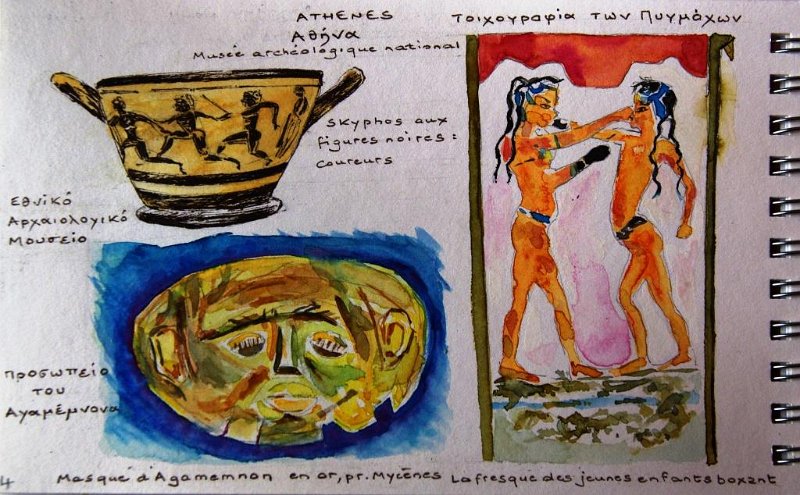 ATHENES
Αθήνα
Musée archéologique national
Τοιχογραφία των Πυγμάχων
skyphos aux
figures noires :
coureurs
Εθνικό
Αρχαιολογικό
Μουσείο
προσωπείο
του
Αγαμέμνονα
4
Masque d'Agamemnon en or, pr. Mycènes
La fresque des jeunes enfants boxant